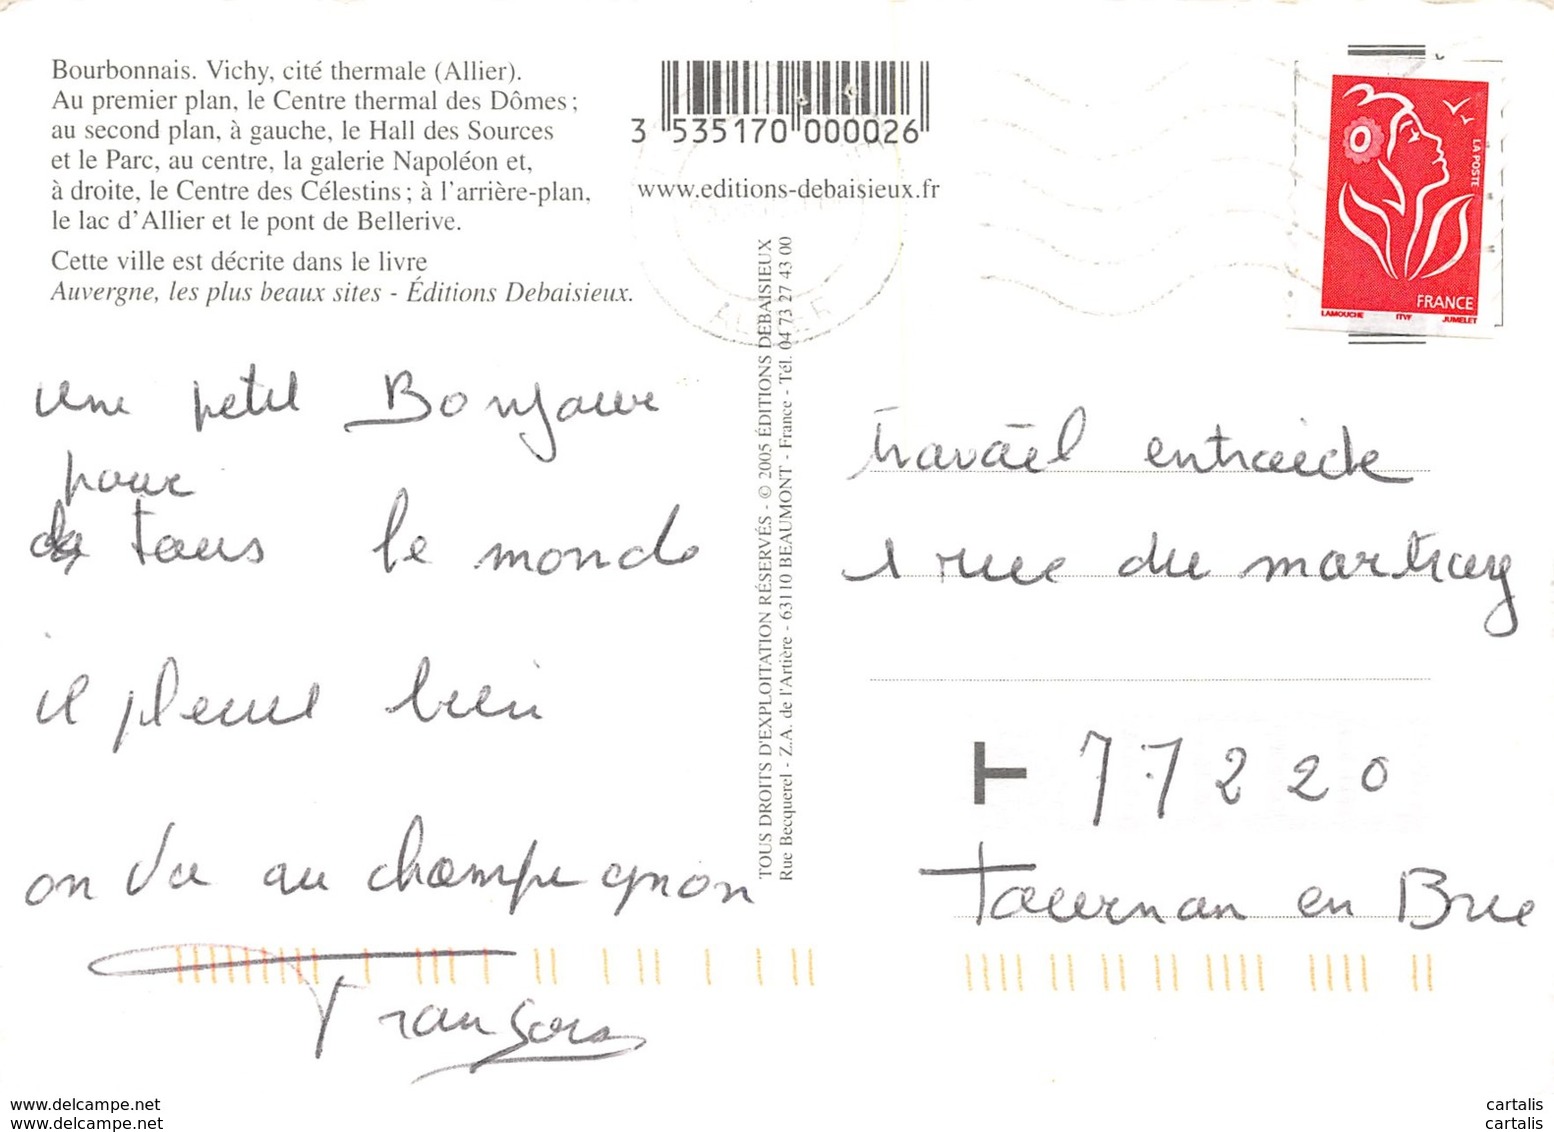 Bourbonnais. Vichy, cité thermale (Allier).
Au premier plan, le Centre thermal des Dômes ;
au second plan, à gauche, le Hall des Sources
et le Parc, au centre, la galerie Napoléon et,
à droite, le Centre des Célestins ; à l'arrière-plan,
le lac d'Allier et le pont de Bellerive.
Cette ville est décrite dans le livre
Auvergne, les plus beaux sites - Éditions Debaisieux.
3 535170 000026
www.editions-debaisieux.fr
ALLIER
LA POSTE
FRANCE
LAMOUCHE ITVF JUMELET
TOUS DROITS D'EXPLOITATION RÉSERVÉS - © 2005 ÉDITIONS DEBAISIEUX
Rue Becquerel - Z.A. de l'Artière - 63110 BEAUMONT - France - Tél. 04 73 27 43 00
une petit Bonjour
pour
tous le monde
il pleut bien
on va au champignon
François
travail entraide
1 rue du martray
T 77220
Tournan en Brie
www.delcampe.net
www.delcampe.net
cartalis
cartalis